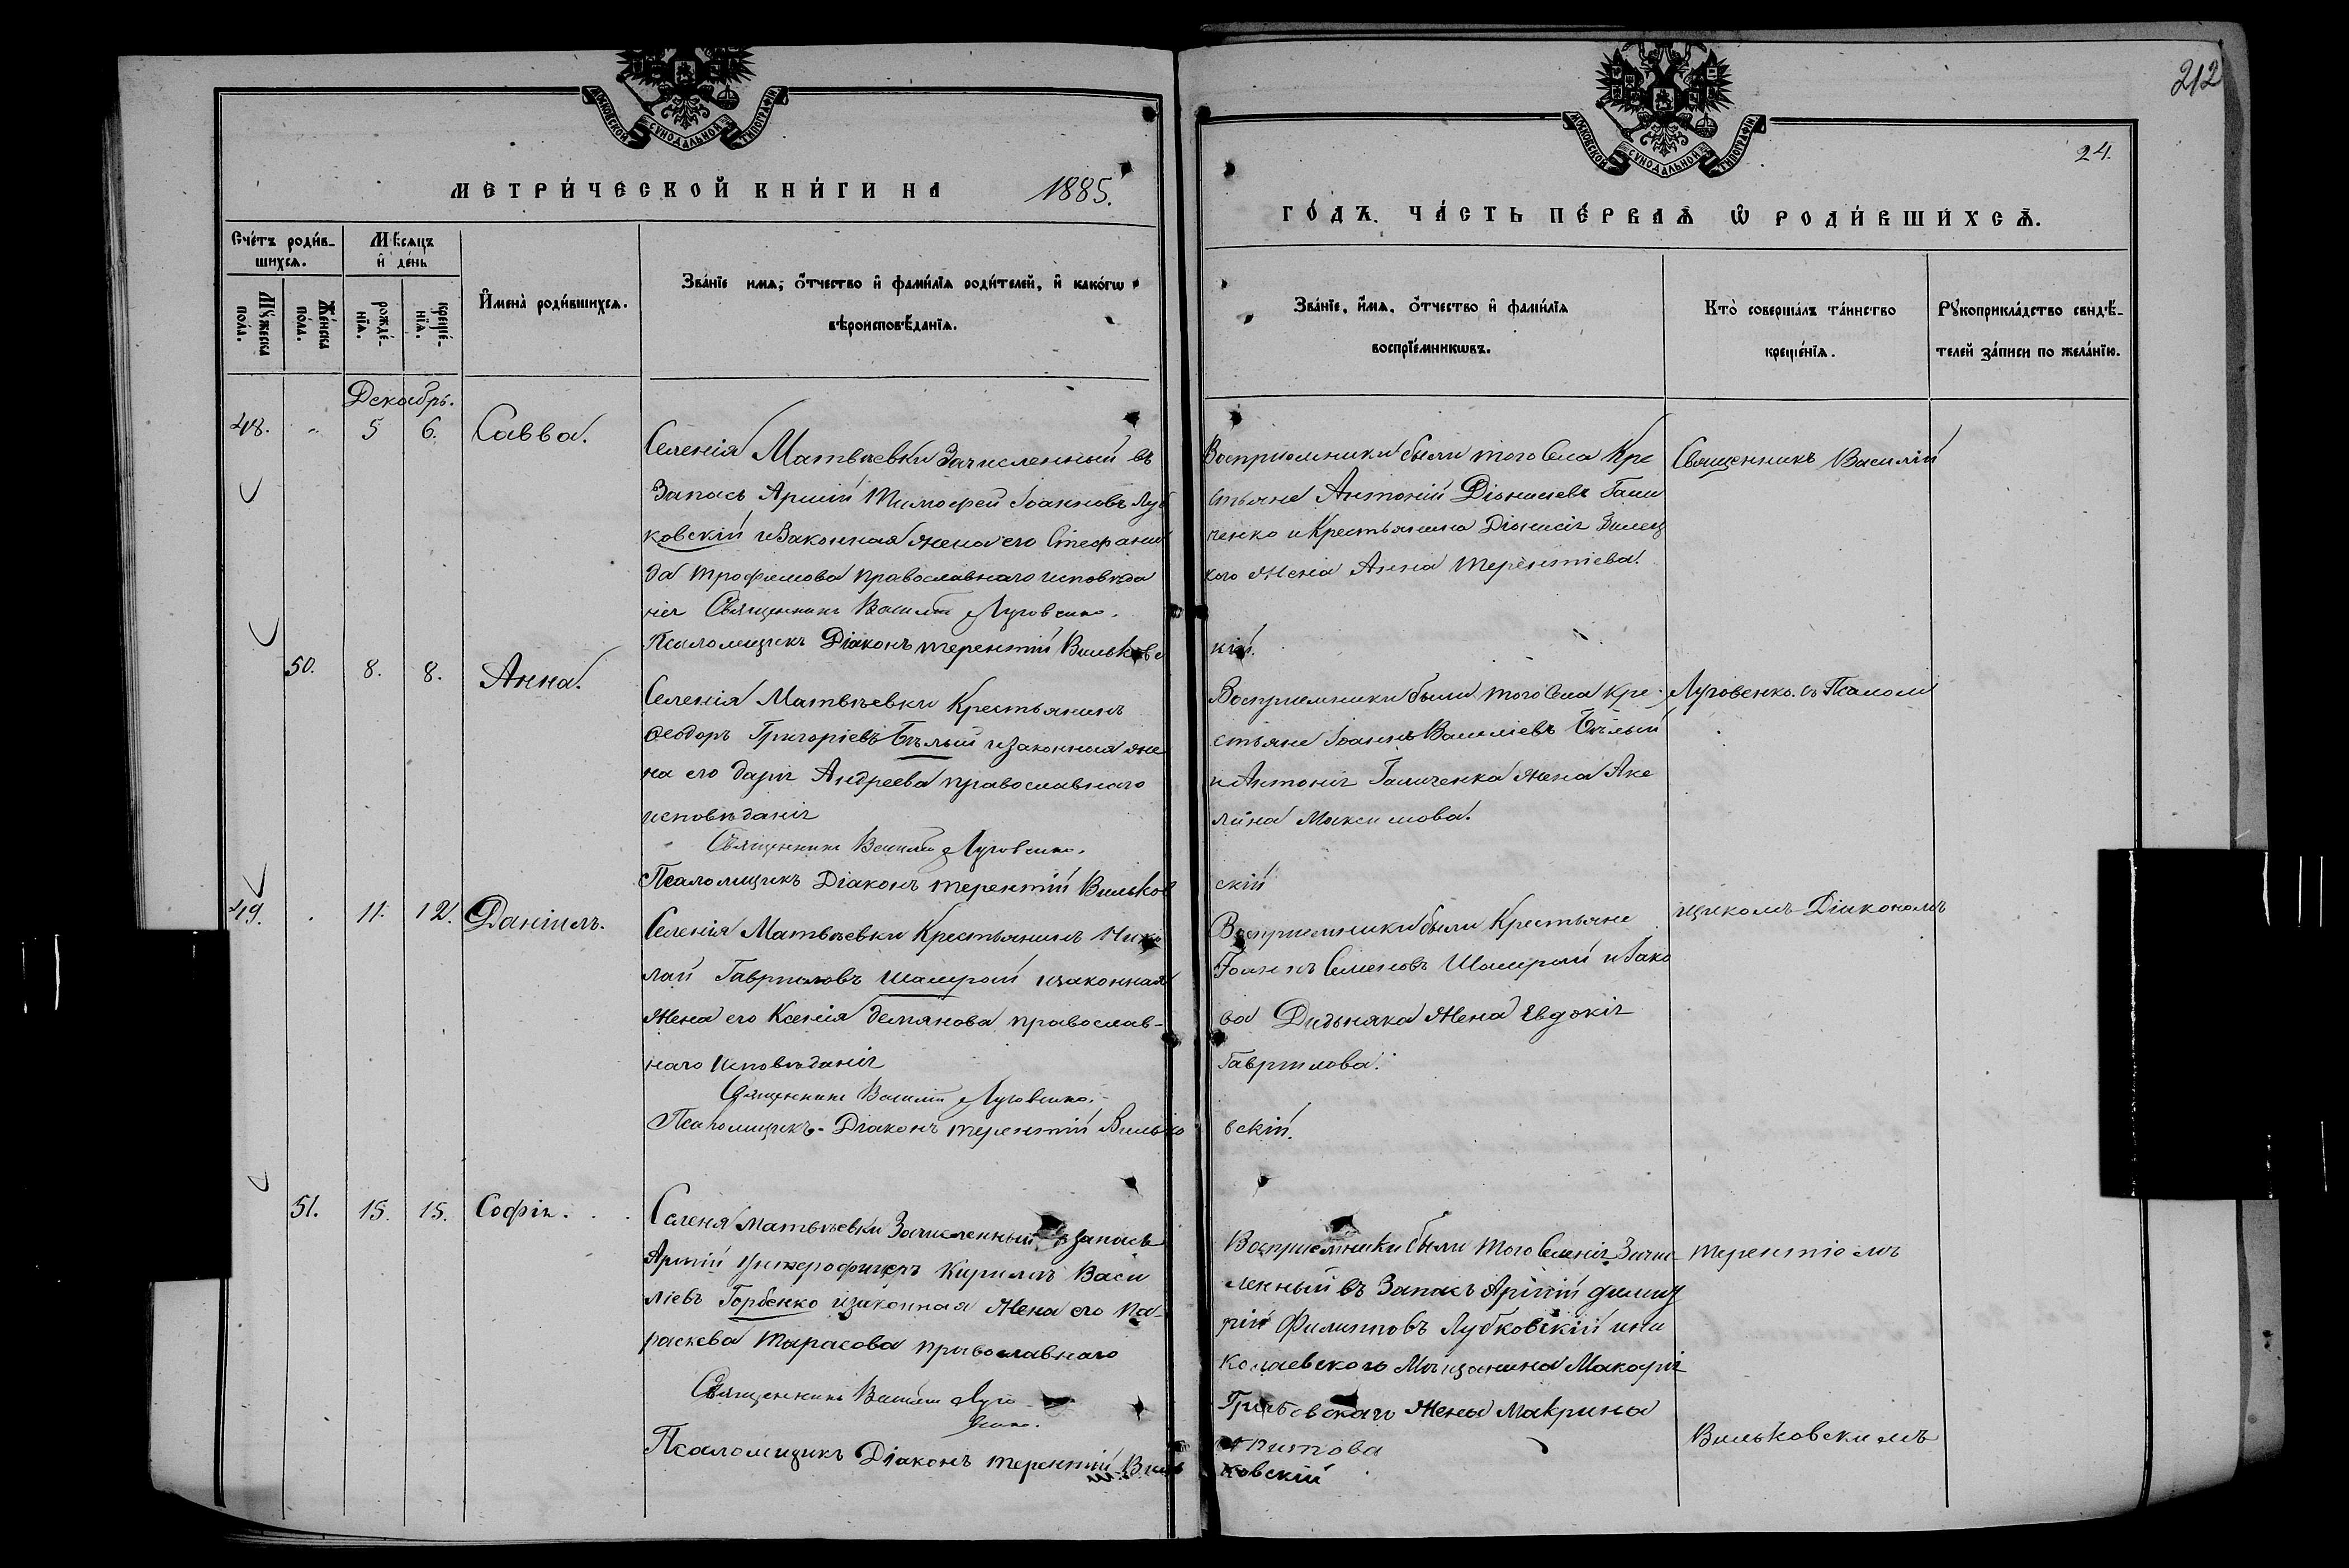 212
24.
МОСКОВСКОЙ СУНОДАЛЬНОЙ ТИПОГРАФІИ
МОСКОВСКОЙ СУНОДАЛЬНОЙ ТИПОГРАФІИ
МЕТРИ́ЧЕСКОЙ КНИ́ГИ НА 1885.
ГО́ДЪ. ЧА́СТЬ ПЕ́РВАѦ Ѡ РОДИ́ВШИХСѦ.
Сче́тъ роди́в-
шихсѧ.
Мѣ́сѧцъ
и҆ де́нь
Мꙋ́жеска
по́ла.
Же́нска
по́ла.
рожде́-
нїѧ.
креще́-
нїѧ.
И҆мена̀ роди́вшихсѧ.
Зва́нїе имѧ, ѻ҆́тчество и҆ фами́лїѧ роди́телей, и҆ како́гѡ
вѣроисповѣ́данїѧ.
Зва́нїе, и҆́мѧ, ѻ҆́тчество и҆ фами́лїѧ
воспрїе́мникѡвъ.
Кто̀ соверша́лъ та́инство
креще́нїѧ.
Рꙋкоприкла́дство свидѣ́-
телей за́писи по жела́нїю.
Декабрь.
48. „ 5 6. Савва.
Селенія Матвѣевки Зачисленный въ
Запасъ Арміи Тимофей Іоанновъ Луб
ковскій и Законная жена его Стефани
да Трофимова православнаго исповѣда
нія Священникъ Василій Луговенко.
Псаломщикъ Діаконъ Терентій Вильковс
Восприемники были того Села Кре
стьяне Антоній Діонисіевъ Гали
ченко и Крестьянина Діонисія Зилец
кого Жена Анна Терентіева.
кій.
Священникъ Василій
50. 8. 8. Анна.
Селенія Матвѣевки Крестьянинъ
Феодоръ Григоріевъ Бѣлый и законная же
на его Дарія Андреева православнаго
исповѣданія
Священникъ Василій Луговенко.
Псаломщикъ Діаконъ Терентій Вильков
Восприемники были того Села Кре-
стьяне Іоаннъ Василіевъ Бѣлый
и Антонія Галиченка жена Аке
лина Максимова.
скій
Луговенко. съ Псалом
49. 11. 12. Даніилъ.
Селенія Матвѣевки Крестьянинъ Нико
лай Гавриловъ Шамрай и законная
Жена его Ксенія Демянова православ-
наго Исповѣданія
Священникъ Василій Луговенко.
Псаломщикъ-Діаконъ Терентій Вилько
Восприемники были Крестьяне
Іоаннъ Семеновъ Шамрай и Іако
ва Дидыняка Жена Евдокія
Гаврилова.
вскій.
щикомъ-Діакономъ
51. 15. 15. Софія.
Селенія Матвѣевки Зачисленный въ запасъ
Арміи Унтерофицеръ Кирилъ Васи
ліевъ Горбенко и законная Жена его Па-
раскева Тарасова православнаго
Священникъ Василій Луго-
венко.
Псаломщикъ Діаконъ Терентій Виль
Восприемники были того Селенія Зачис-
ленный въ Запасъ Арміи
Филипповъ Лубковскій и Ни
колаевского Мѣщанина Макарія
Жена Макрина
ковскій
Терентіемъ
Вильковскимъ